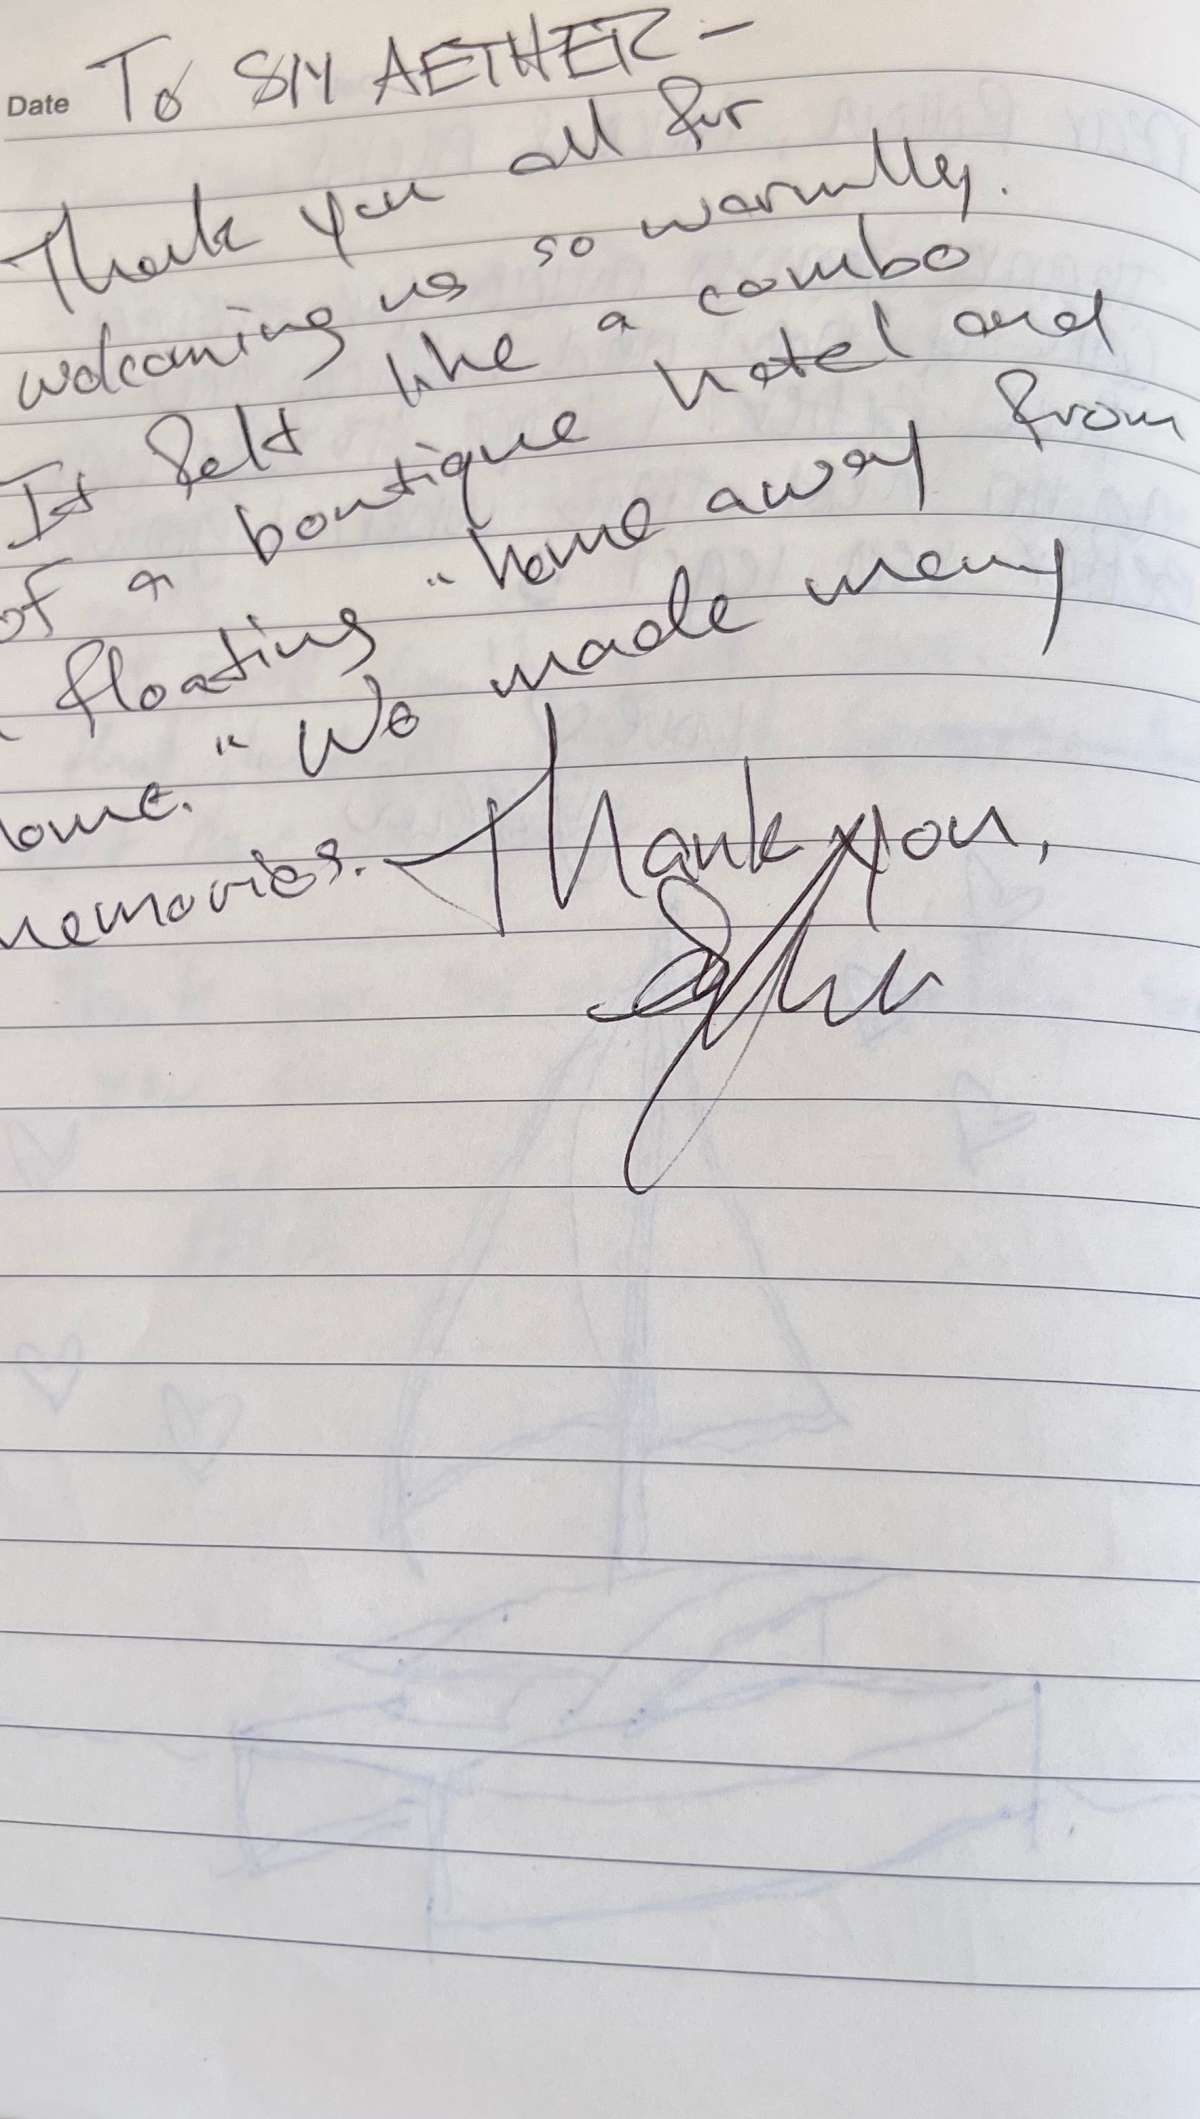 Date To S/Y AETHER –
Thank you all for
welcoming us so warmly.
It felt like a combo
of a boutique hotel and
floating "home away from
home." We made many
memories. Thank you,